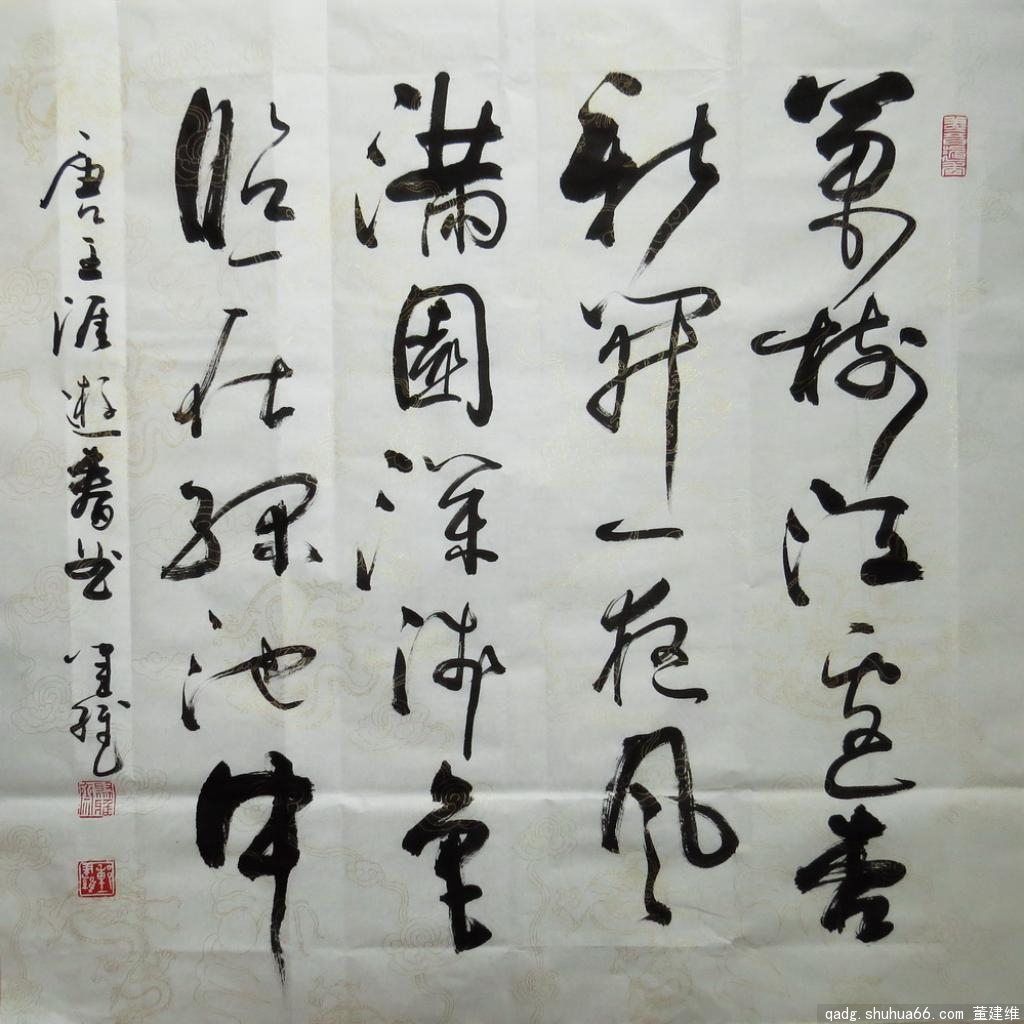 萬樹江邊杏
新開一夜風
滿園深淺色
照在綠池中
唐王涯遊春曲 建維
qadg.shuhua66.com 董建维